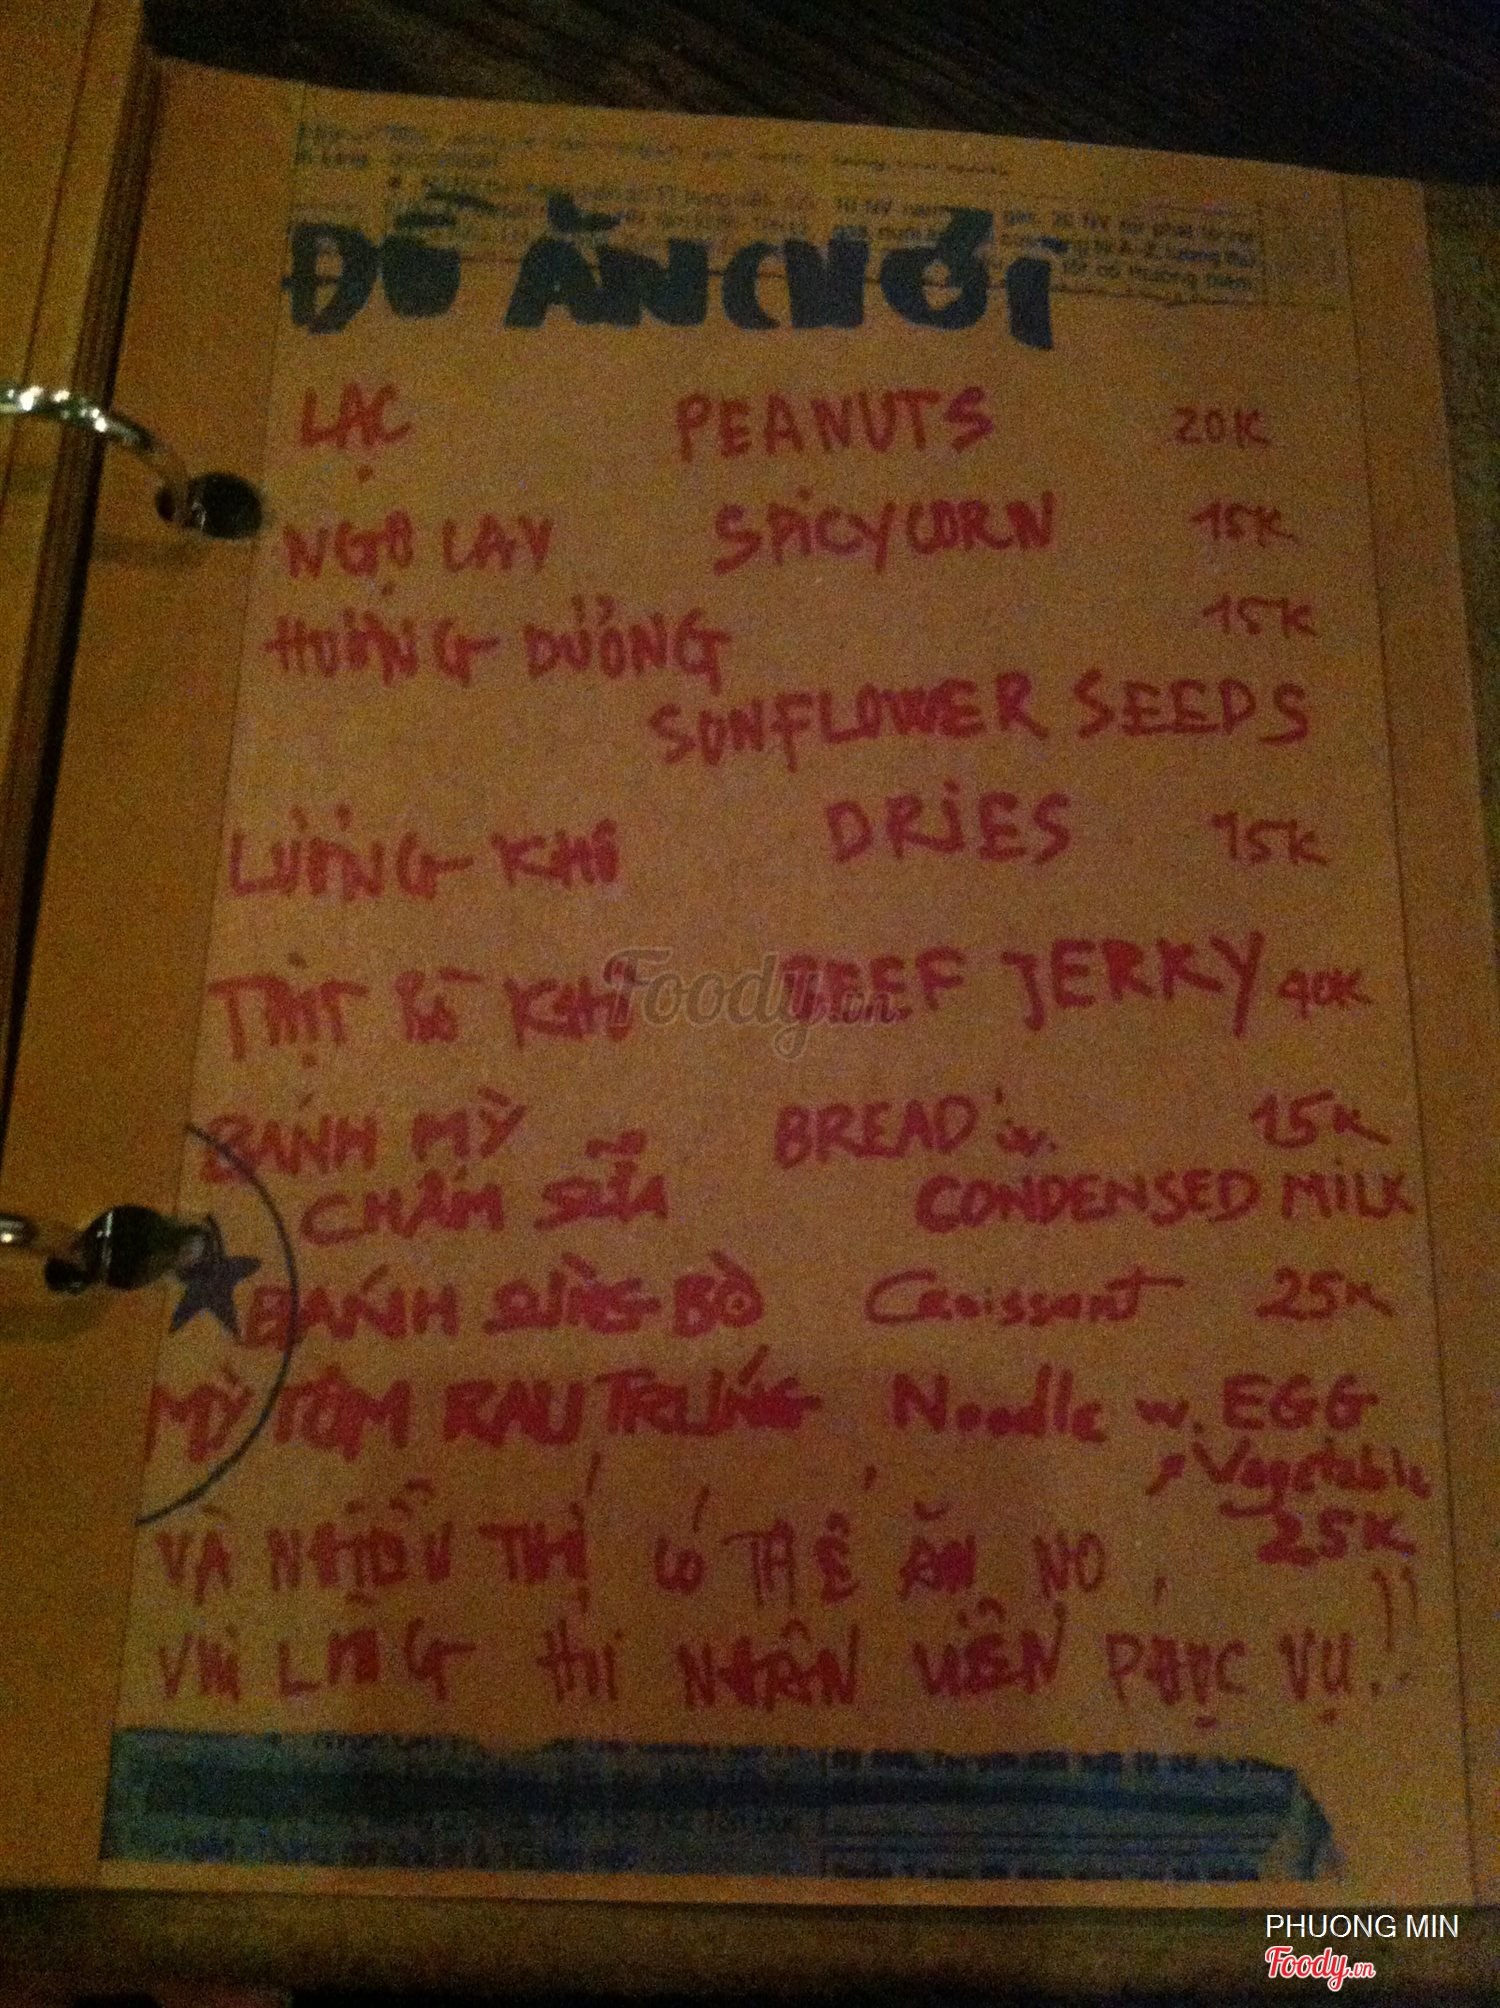 ĐỒ ĂN CHƠI
LẠC PEANUTS 20K
NGÔ CAY SPICY CORN 15K
HƯỚNG DƯƠNG 15K
SUNFLOWER SEEDS
LƯƠNG KHÔ DRIES 15K
THỊT BÒ KHÔ BEEF JERKY 40K
BÁNH MỲ BREAD w. 15K
CHẤM SỮA CONDENSED MILK
BÁNH SỪNG BÒ Croissant 25K
MỲ TÔM RAU TRỨNG Noodle w. EGG
Vegetable
25K
VÀ NHIỀU THỨ CÓ THỂ ĂN NO,
VUI LÒNG HỎI NHÂN VIÊN PHỤC VỤ!!
Foody.vn
PHUONG MIN
Foody.vn